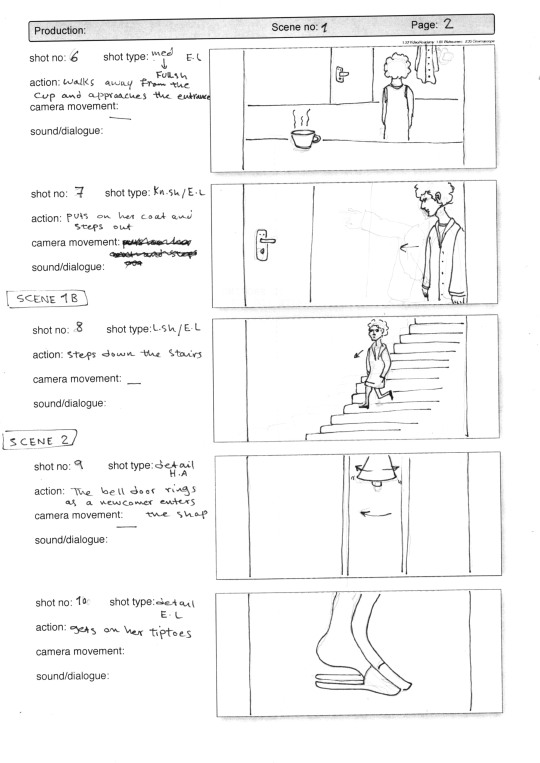 Production: Scene no: 1 Page: 2
shot no: 6 shot type: med E.L
↓
FULSH
action: walks away from the
cup and approaches the entrance
camera movement: —
sound/dialogue:
shot no: 7 shot type: Kn.sh/E.L
action: puts on her coat and
steps out
camera movement:
sound/dialogue:
SCENE 1B
shot no: 8 shot type: L.sh/E.L
action: steps down the stairs
camera movement: —
sound/dialogue:
SCENE 2
shot no: 9 shot type: detail
H.A
action: The bell door rings
as a newcomer enters
camera movement: — the shop
sound/dialogue:
shot no: 10 shot type: detail
E.L
action: gets on her tiptoes
camera movement:
sound/dialogue: